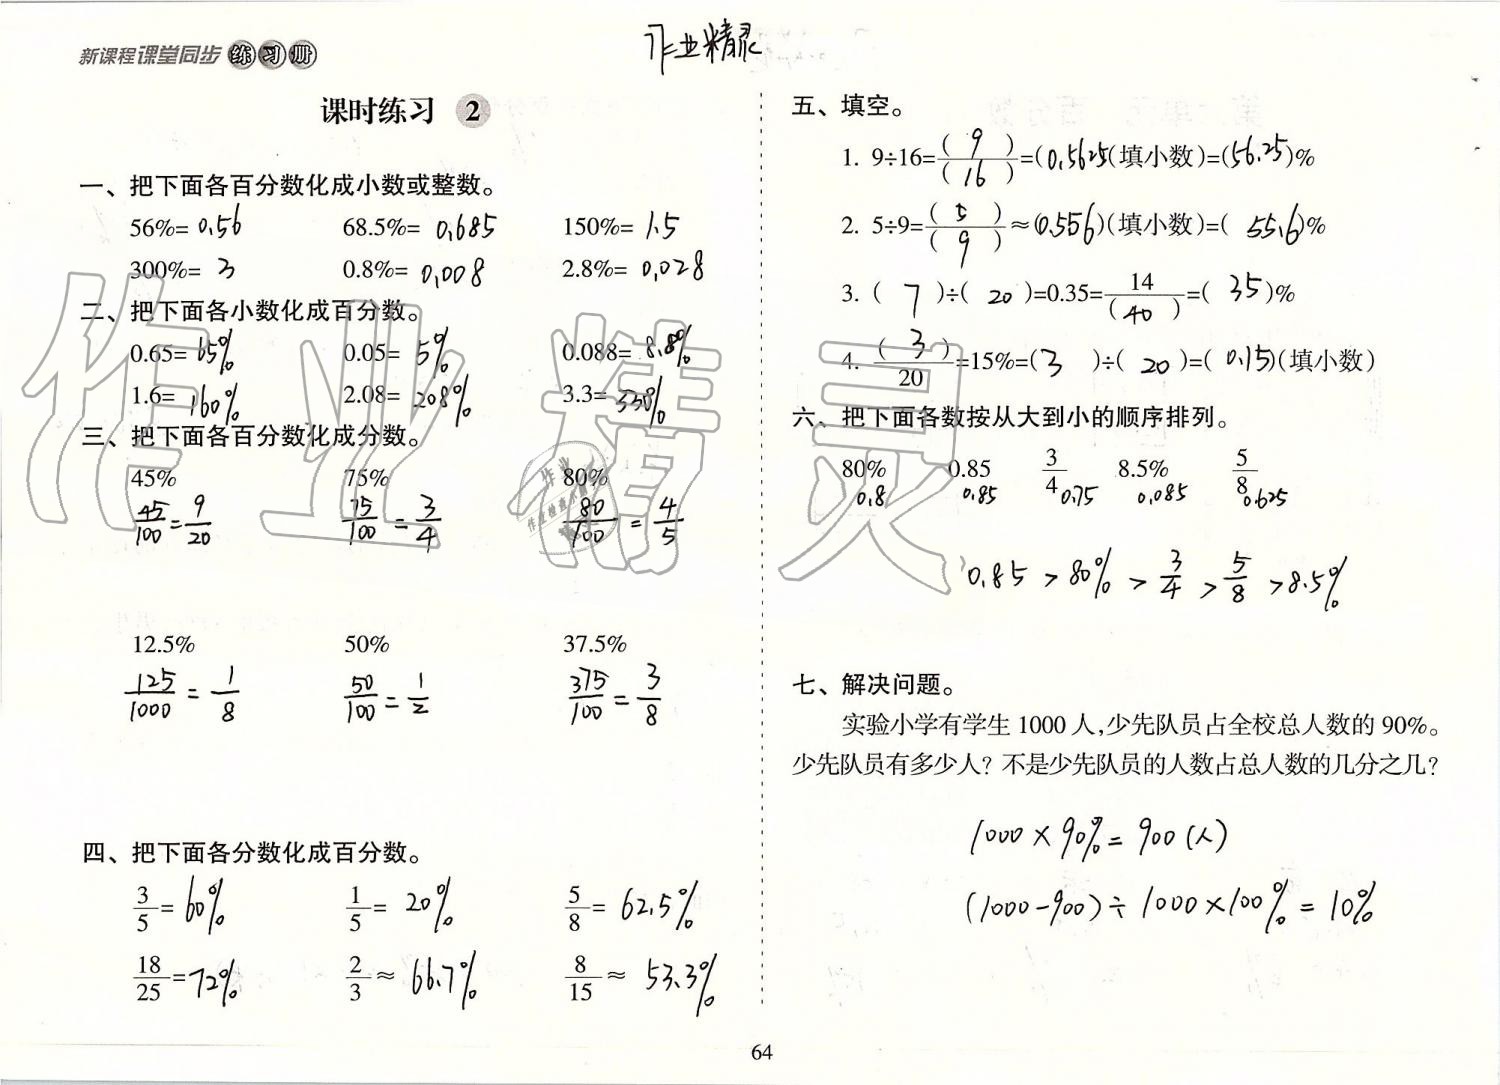 新课程课堂同步练习册
作业精灵
课时练习 2
一、把下面各百分数化成小数或整数。
56%= 0.56 68.5%= 0.685 150%= 1.5
300%= 3 0.8%= 0.008 2.8%= 0.028
二、把下面各小数化成百分数。
0.65= 65% 0.05= 5% 0.088= 8.8%
1.6= 160% 2.08= 208% 3.3= 330%
三、把下面各百分数化成分数。
45% 75% 80%
45/100 = 9/20 75/100 = 3/4 80/100 = 4/5
12.5% 50% 37.5%
125/1000 = 1/8 50/100 = 1/2 375/100 = 3/8
四、把下面各分数化成百分数。
3/5 = 60% 1/5 = 20% 5/8 = 62.5%
18/25 = 72% 2/3 ≈ 66.7% 8/15 ≈ 53.3%
五、填空。
1. 9÷16=( 9 )/( 16 )=(0.5625(填小数)=(56.25)%
2. 5÷9=( 5 )/( 9 )≈(0.556)(填小数)=( 55.6)%
3. ( 7 )÷( 20 )=0.35=14/( 40 )=( 35 )%
4. ( 3 )/20=15%=(3 )÷( 20 )=( 0.15)(填小数)
六、把下面各数按从大到小的顺序排列。
80% 0.85 3/4 8.5% 5/8
0.8 0.85 0.75 0.085 0.625
0.85 > 80% > 3/4 > 5/8 > 8.5%
七、解决问题。
实验小学有学生 1000 人,少先队员占全校总人数的 90%。
少先队员有多少人? 不是少先队员的人数占总人数的几分之几?
1000 × 90% = 900 (人)
(1000-900) ÷ 1000 × 100% = 10%
64
作业精灵